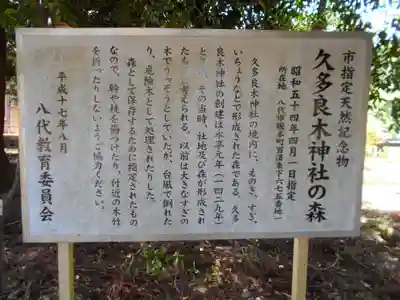 市指定天然記念物
久多良木神社の森
昭和五十四年四月一日指定
所在地 八代市坂本町百済来下六七五番地
久多良木神社の境内に、ものき、すぎ、
いちょうなどで形成された森である。久多
良木神社の創建は永享元年(一四二九年)
とさ、その当時、社地及び森が形成され
たもと考えられる。以前は大きなすぎの
木でうっそうとしていたが、台風で倒れた
り、危険木として処理されたりした。
森として保存するために指定されたもの
なので、幹や枝を傷つけたり、付近の木竹
を折ったりしないようご協力ください。
平成十七年八月
八代教育委員会